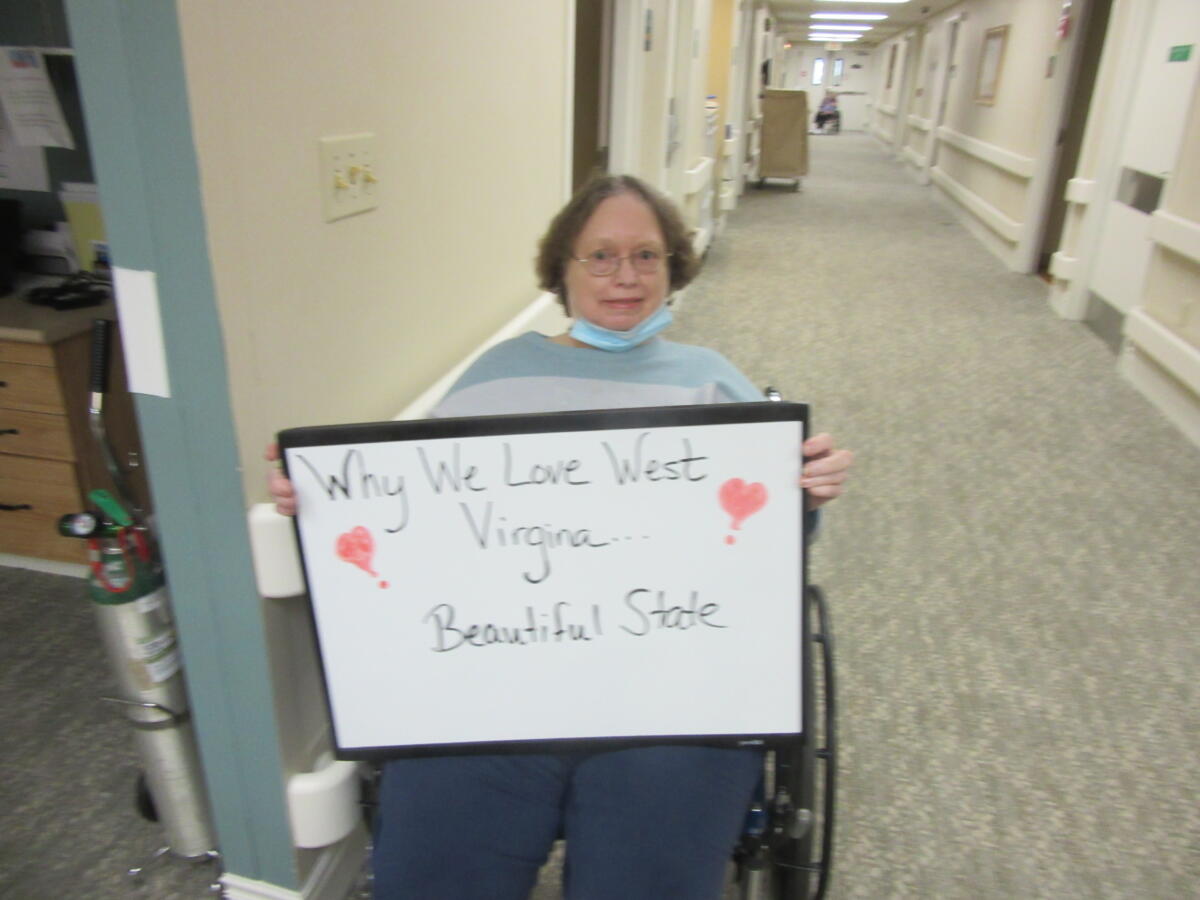 Why We Love West
Virgina...
Beautiful State